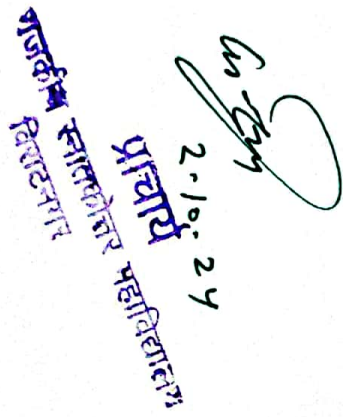 2.10.24
प्राचार्य
राजकीय स्नातकोत्तर महाविद्यालय
विराटनगर